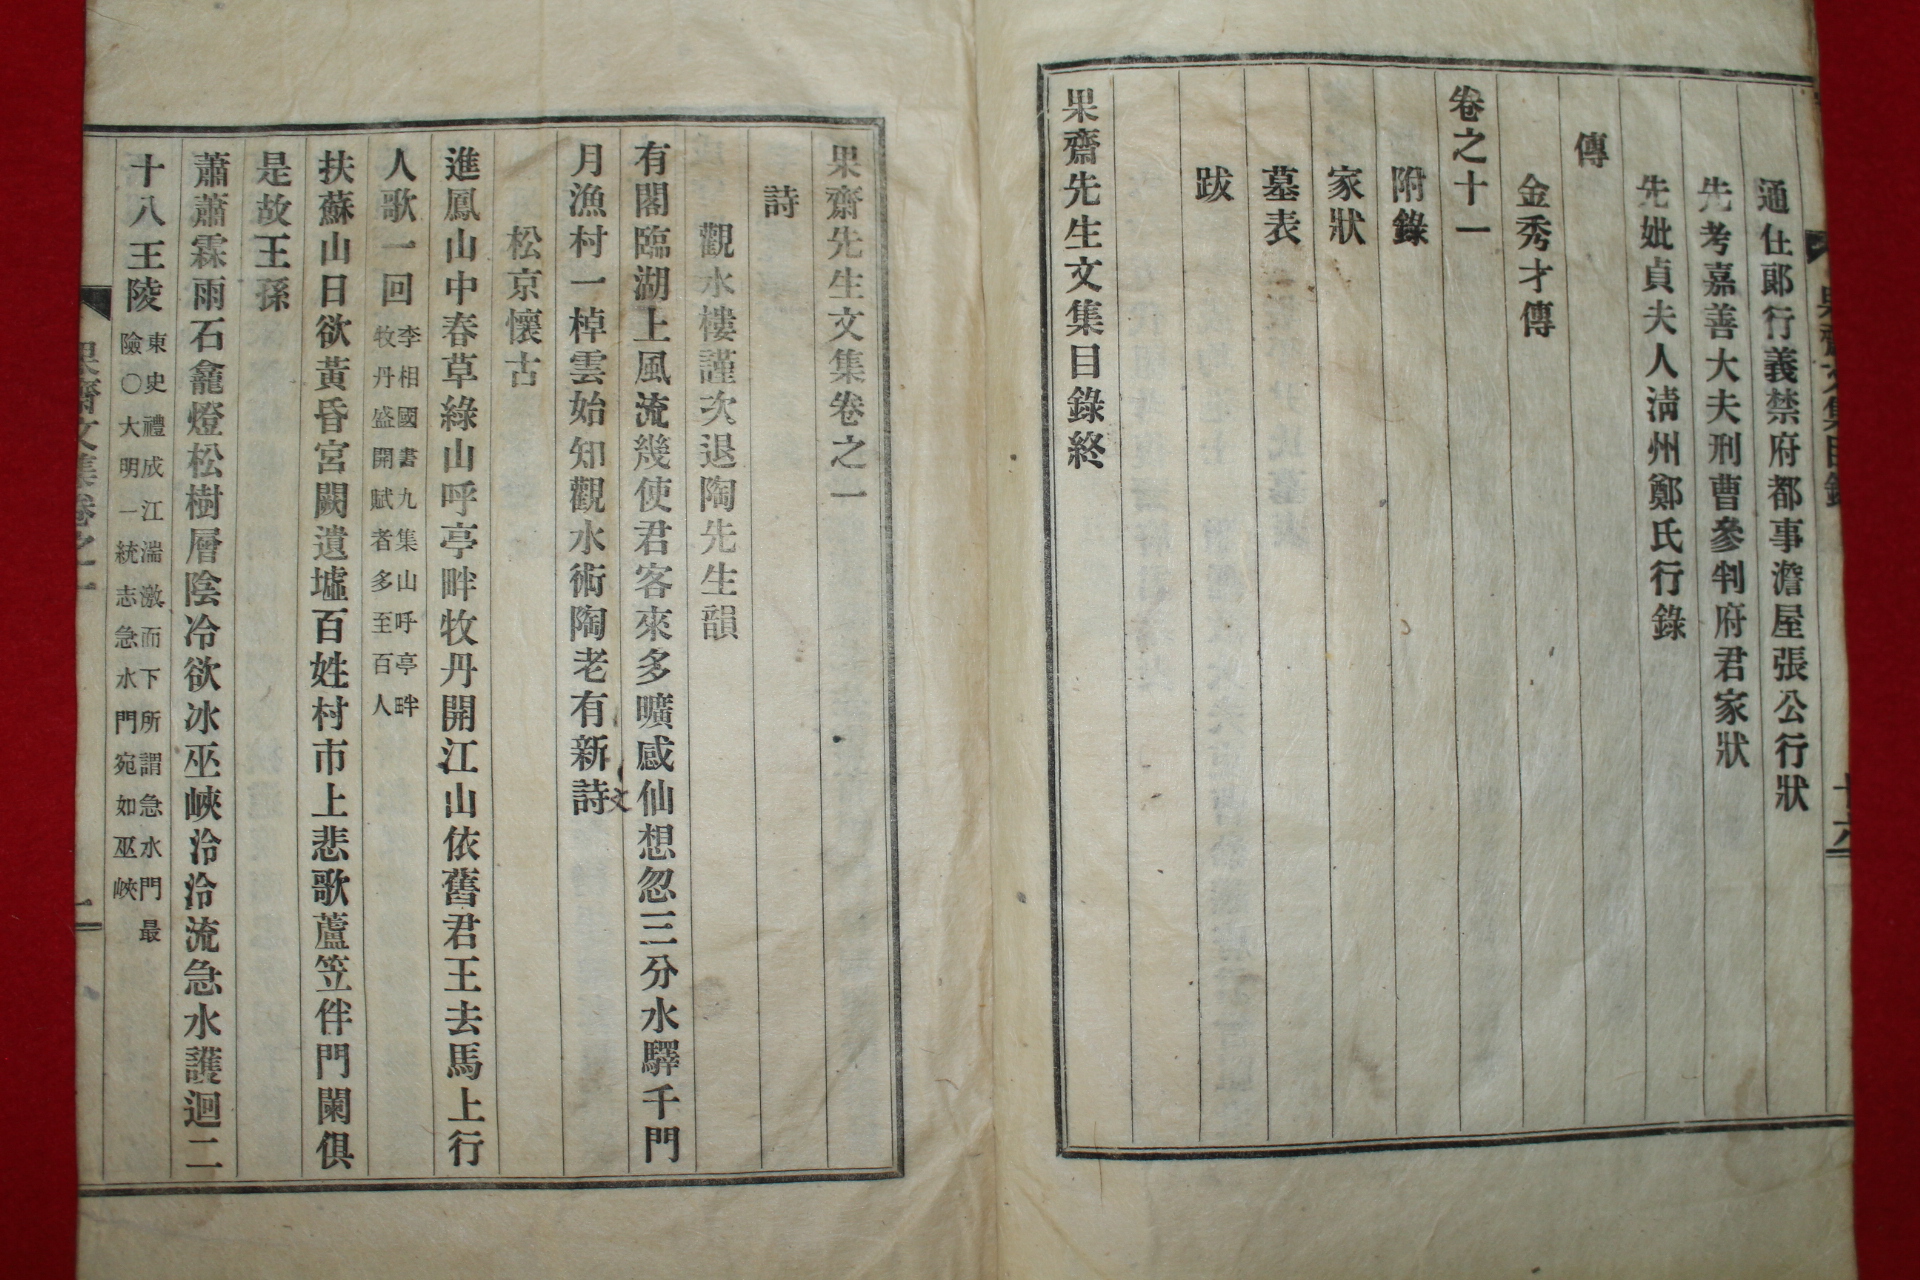 通仕郞行義禁府都事澹屋張公行狀
先考嘉善大夫刑曹參判府君家狀
先妣貞夫人淸州鄭氏行錄
傳
金秀才傳
卷之十一
附錄
家狀
墓表
跋
果齋先生文集目錄終
果齋先生文集卷之一
詩
觀水樓謹次退陶先生韻
有閣臨湖上風流幾使君客來多曠感仙想忽三分水驛千門
月漁村一棹雲始知觀水術陶老有新詩
文
松京懷古
進鳳山中春草綠山呼亭畔牧丹開江山依舊君王去馬上行
人歌一回
李相國書九集山呼亭畔
牧丹盛開賦者多至百人
扶蘇山日欲黃昏宮闕遺墟百姓村市上悲歌蘆笠伴門闌俱
是故王孫
蕭蕭霖雨石龕燈松樹層陰冷欲冰巫峽泠泠流急水護迴二
十八王陵
東史禮成江湍激而下所謂急水門最
險○大明一統志急水門宛如巫峽
果齋文集卷之一